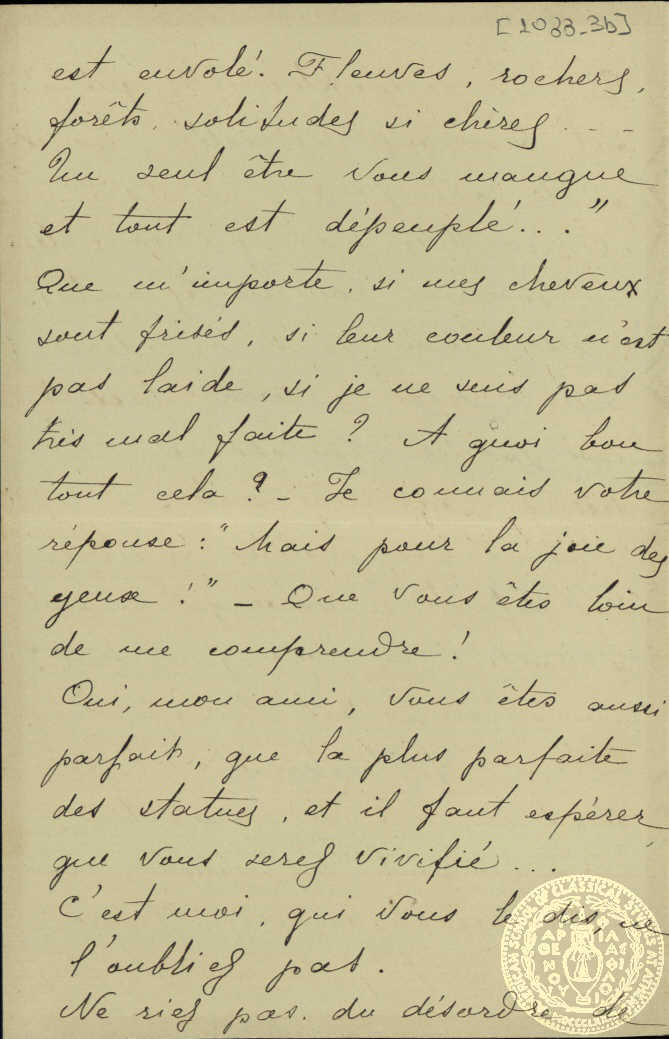 [1033-3b]
est envolé. Fleuves, rochers,
forêts, solitudes si chères...
Un seul être vous manque
et tout est dépeuplé..."
Que m'importe, si mes cheveux
sont frisés, si leur couleur n'est
pas laide, si je ne suis pas
très mal faite? A quoi bon
tout cela? - Je connais votre
réponse: "Mais pour la joie des
yeux!" - Que vous êtes loin
de me comprendre!
Oui, mon ami, vous êtes aussi
parfait, que la plus parfaite
des statues, et il faut espérer,
que vous serez vivifié...
C'est moi, qui vous le dis, ne
l'oubliez pas.
Ne riez pas du désordre de
AMERICAN SCHOOL OF CLASSICAL STUDIES AT ATHENS